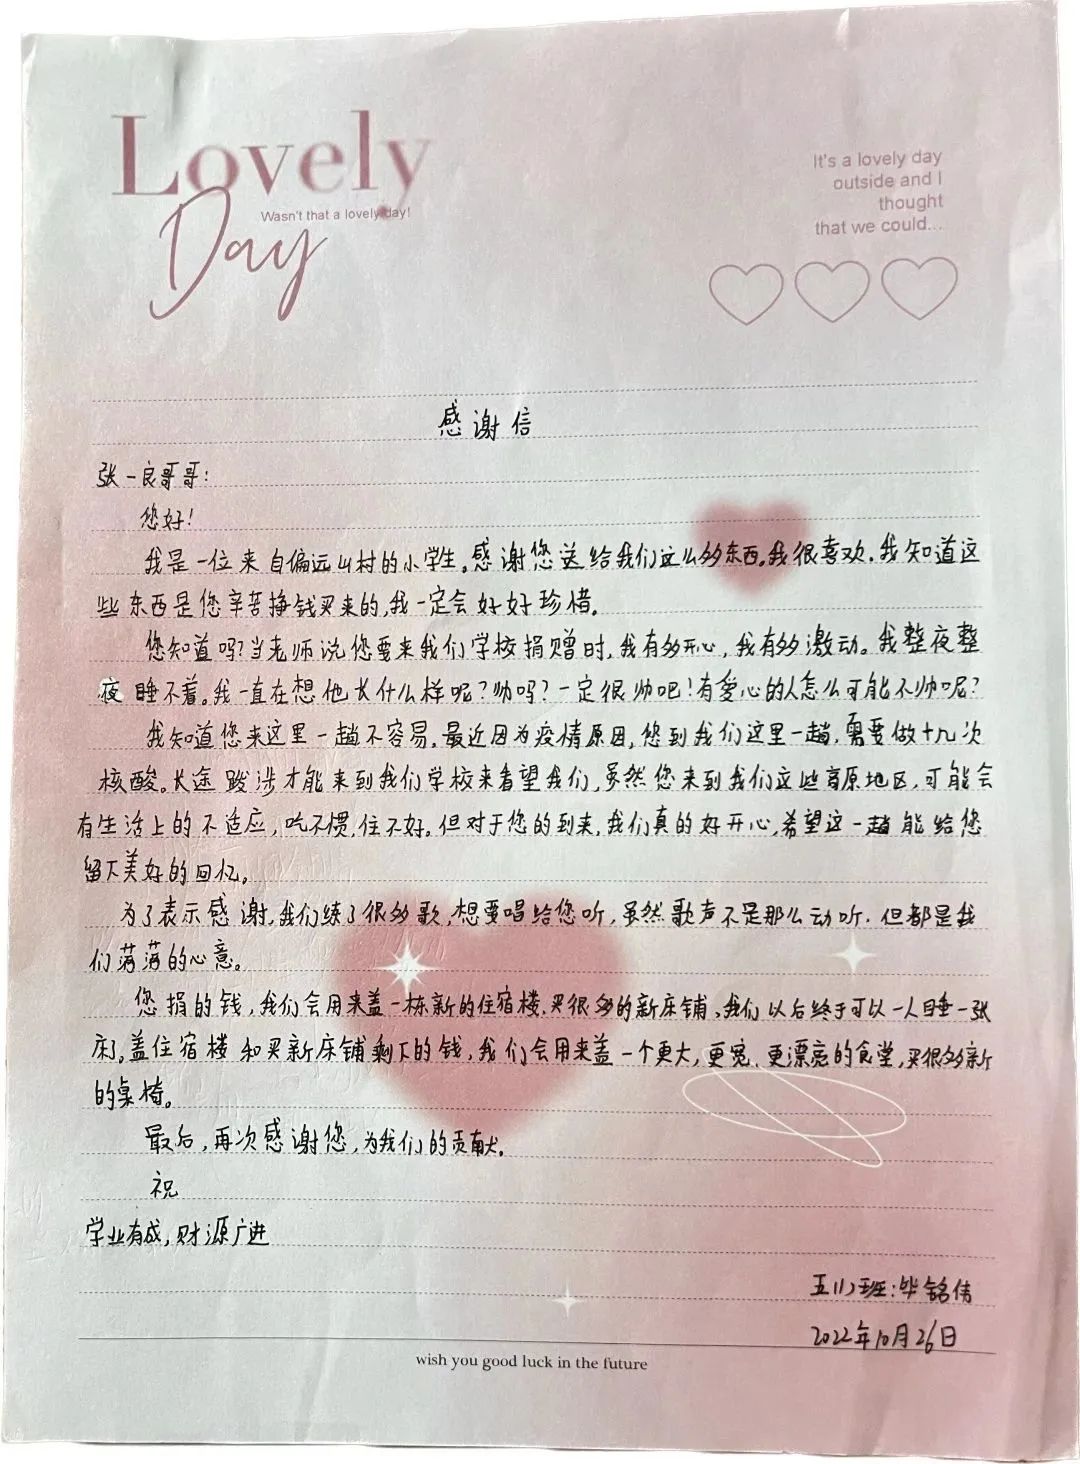 Lovely
Day
Wasn't that a lovely day!
It's a lovely day
outside and I
thought
that we could...
感谢信
张一良哥哥：
您好！
我是一位来自偏远山村的小学生。感谢您送给我们这么多东西。我很喜欢。我知道这
些东西是您辛苦挣钱买来的，我一定会好好珍惜。
您知道吗？当老师说您要来我们学校捐赠时，我有多开心，我有多激动。我整夜整
夜睡不着。我一直在想他长什么样呢？帅吗？一定很帅吧！有爱心的人怎么可能不帅呢？
我知道您来这里一趟不容易。最近因为疫情原因，您到我们这里一趟，需要做十几次
核酸。长途跋涉才能来到我们学校来看望我们，虽然您来到我们这些高原地区，可能会
有生活上的不适应，吃不惯，住不好。但对于您的到来，我们真的好开心，希望这一趟能给您
留下美好的回忆。
为了表示感谢，我们练了很多歌，想要唱给您听，虽然歌声不是那么动听，但都是我
们薄薄的心意。
您捐的钱，我们会用来盖一栋新的住宿楼，买很多的新床铺，我们以后终于可以一人睡一张
床了。盖住宿楼和买新床铺剩下的钱，我们会用来盖一个更大，更宽，更漂亮的食堂，买很多新
的桌椅。
最后，再次感谢您，为我们的贡献。
祝
学业有成，财源广进
五（1）班：毕铭伟
2022年10月26日
wish you good luck in the future